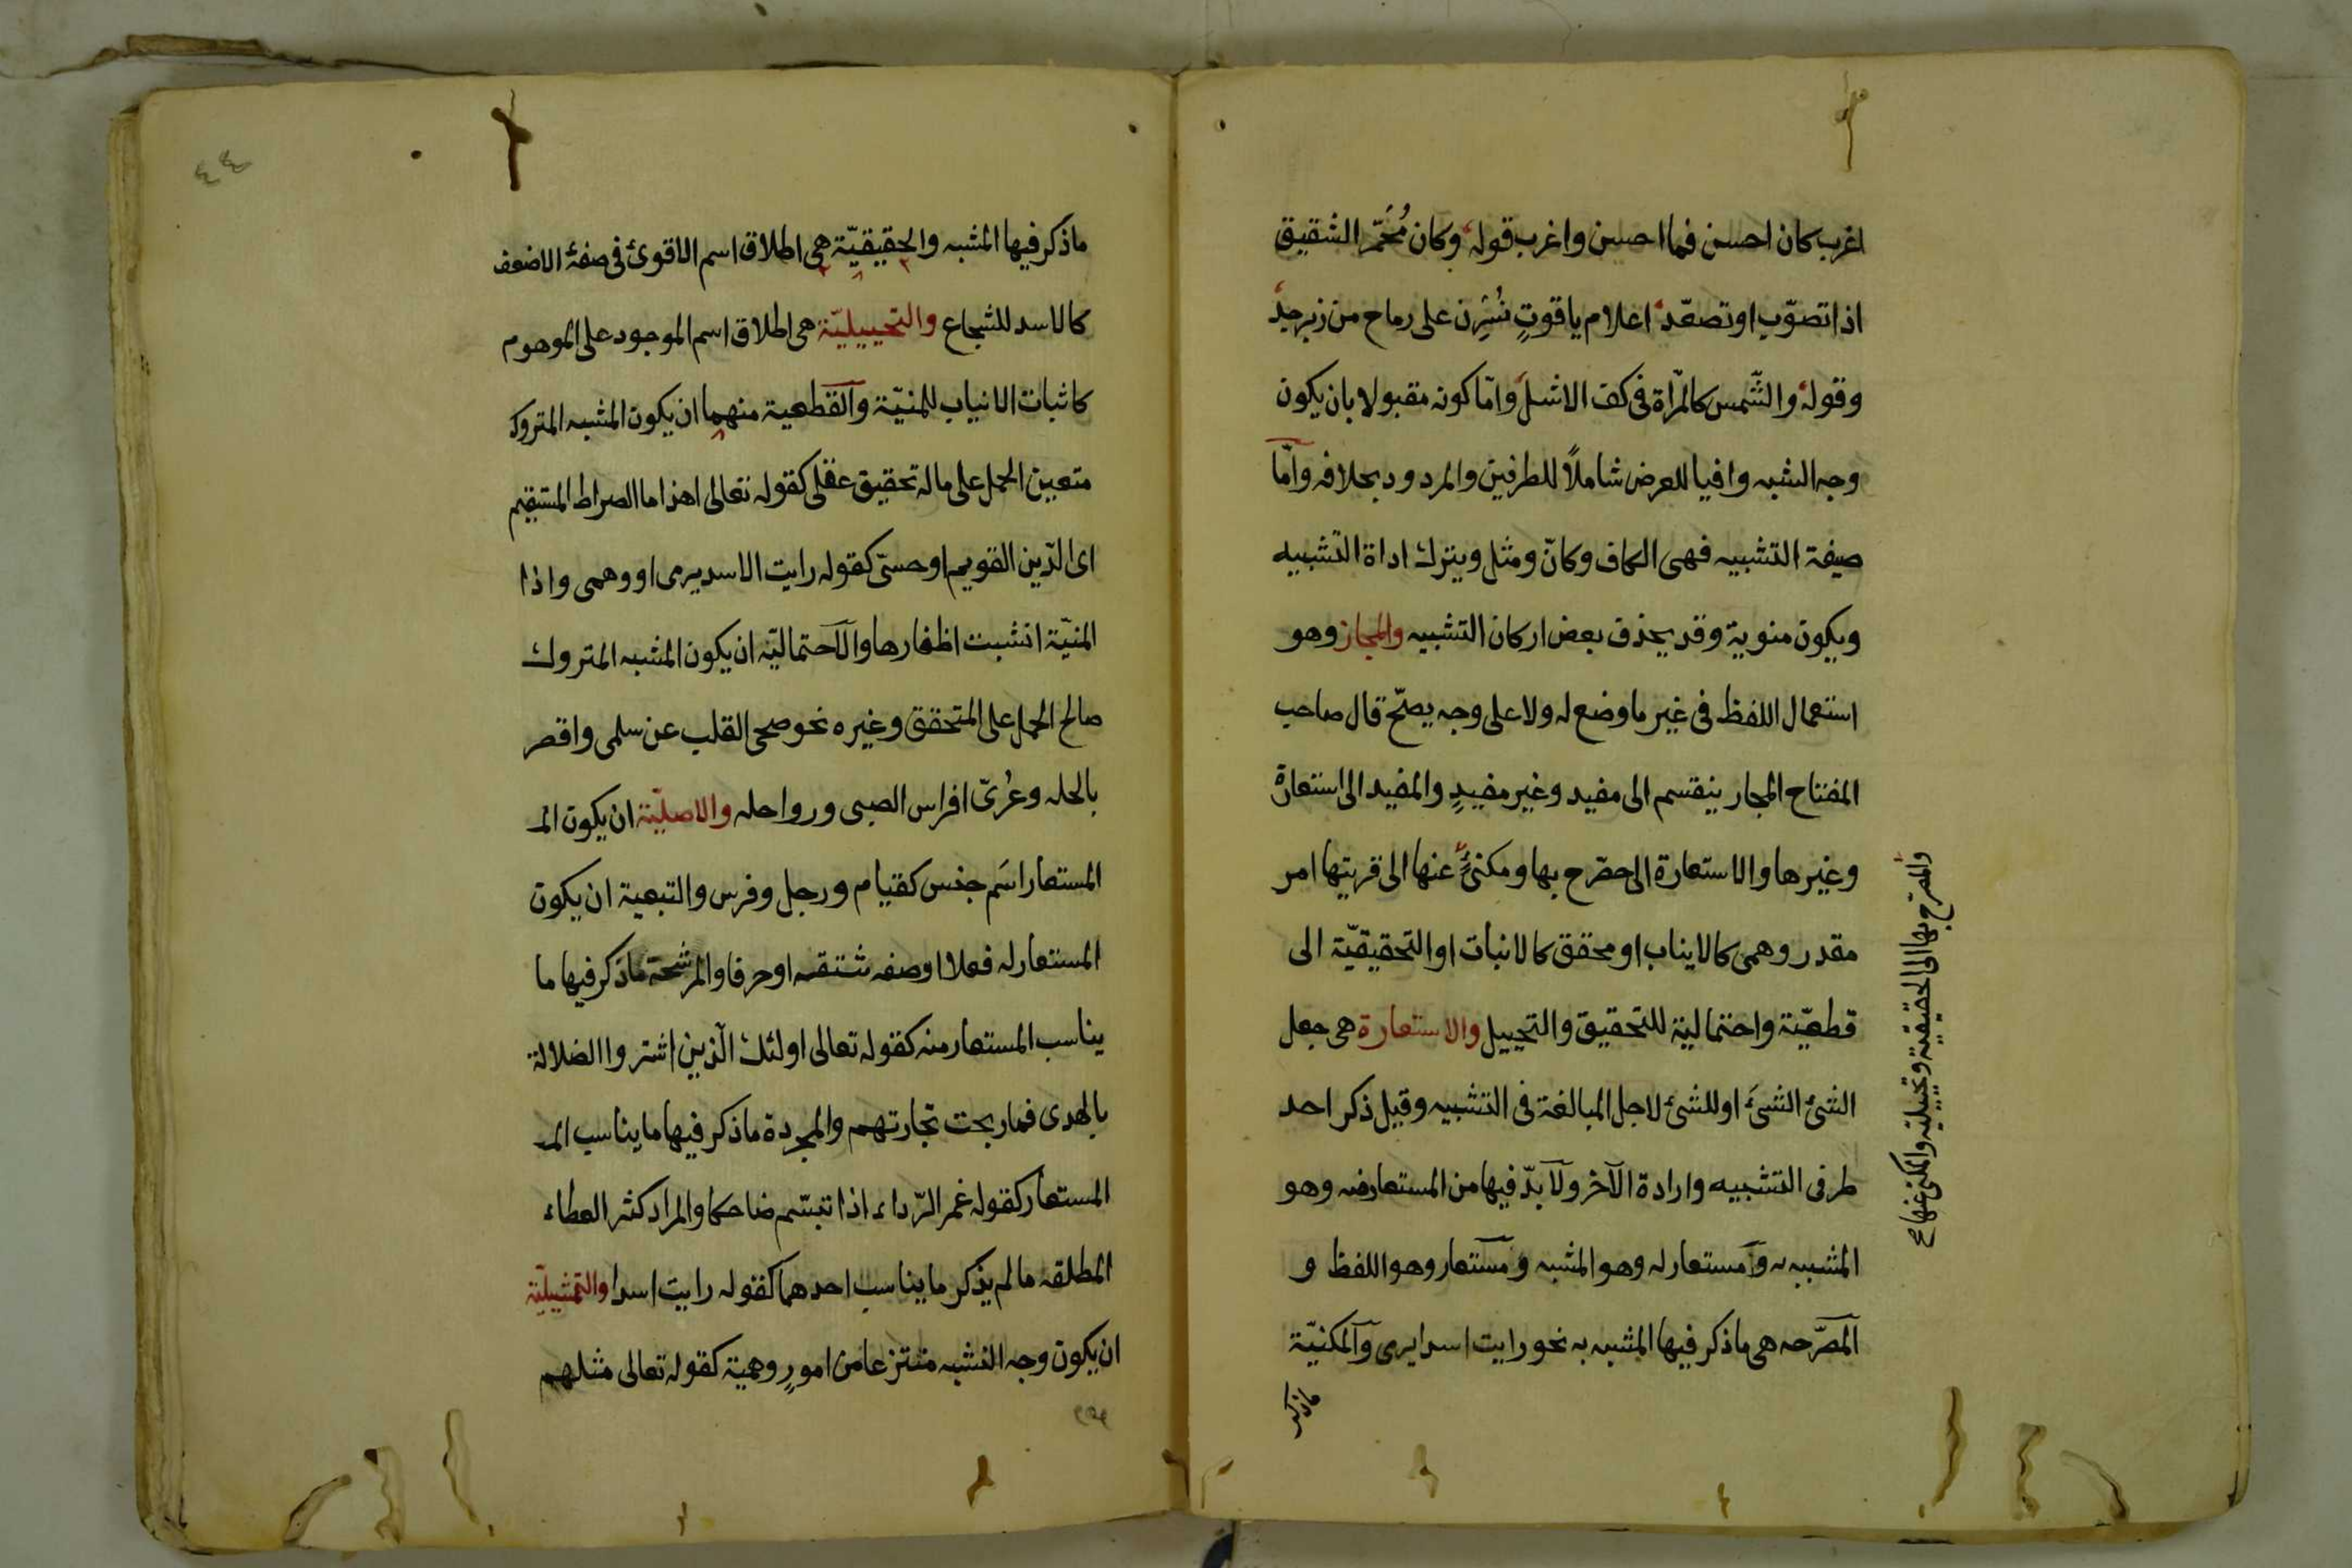 اغرب كان احسن فما احسن واغرب قوله وكان مُحَمّر الشقيق
اذا تصوّب او تصعّد اعلام ياقوتٍ نُشِرن على رماح من زبرجد
وقوله والشّمس كالمرّاة فى كف الاشل وامّا كونه مقبولا بان يكون
وجه الشبه وافيا للعرض شاملاً للطرفين والمردود بخلافه وامّا
صيغة التشبيه فهى الكاف وكانّ ومثل ويترك اداة التشبيه
ويكون منوية وقد يحذف بعض اركان التشبيه والمجاز وهو
استعمال اللفظ فى غير ما وضع له ولا على وجه يصحّ قال صاحب
المفتاح المجار ينقسم الى مفيد وغير مفيدٍ والمفيد الى استعارة
وغيرها والاستعارة الى مصّرح بها ومكنىٍّ عنها الى قرينتها امر
مقدر وهمى كالايناب او محقق كالانبات او التحقيقيّة الى
قطعيّة واحتمالية للتحقيق والتخييل والاستعارة هى جعل
الشئ الشئَ او للشئ لاجل المبالغة فى التشبيه وقيل ذكر احد
طرفى التشبيه وارادة الآخر ولا بدّ فيها من المستعارضه وهو
المشبه به ومستعار له وهو المشبه ومستعار وهو اللفظ و
المصّرحه هى ما ذكر فيها المشبه به نحو رايت اسدا يرى والمكنيّة
ماذكر
والمصّرح بها الى الحقيقية وتخييلية والمكنى عنها ع
٤٤
ماذكر فيها المشبه والحقيقيّة هى اطلاق اسم الاقوى فى صفة الاضعف
كالاسد للشجاع والتخييليّة هى اطلاق اسم الموجود على الموهوم
كاثبات الانياب للمنيّة والقطعية منهما ان يكون المشبه المتروك
متعين الحمل على ماله تحقيق عقلى كقوله تعالى اهذا ما الصراط المستقيم
اى الدّين القويم او حسىّ كقوله رايت الاسد يرمى او وهمى واذا
المنيّة انشبت اظفارها والاحتماليّه ان يكون المشبه المتروك
صالح الحمل على المتحقق وغيره نحو صحى القلب عن سلمى واقصر
بالحله وعُرىّ افراس الصبى ورواحله والاصليّة ان يكون الم
المستعار اسَم جنس كقيام ورجل وفرس والتبعية ان يكون
المستعار له فعلا او صفه شتقه او حرفا والمرشحة ماذكر فيها ما
يناسب المستعار منه كقوله تعالى اولئك الّذين اشتروا الضلالة
بالهدى فما ربحت تجارتهم والمجردة ماذكر فيها ما يناسب الم
المستعار كقوله غمر الرّداء اذا تبسّم ضاحكا والمراد كثر العطاء
المطلقه ما لم يذكر ما يناسب احدهما كقوله رايت اسدا والتمثيليّة
ان يكون وجه الشبه منتزعا من امورٍ وهمية كقوله تعالى مثلهم